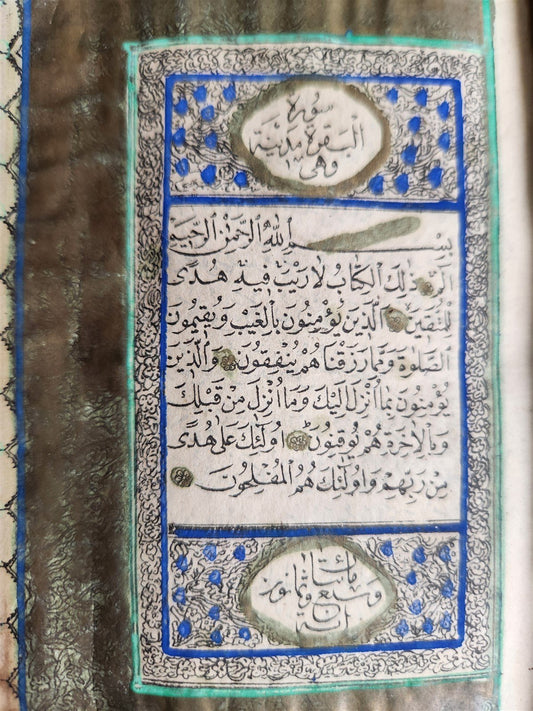 سورة
البقرة مدنية
وهي
بسم الله الرحمن الرحيم
الم ذلك الكتاب لا ريب فيه هدى
للمتقين الذين يؤمنون بالغيب ويقيمون
الصلوة ومما رزقناهم ينفقون والذين
يؤمنون بما انزل اليك وما انزل من قبلك
وبالاخرة هم يوقنون اولئك على هدى
من ربهم واولئك هم المفلحون
مائتان
وسبع وثمانون
اية